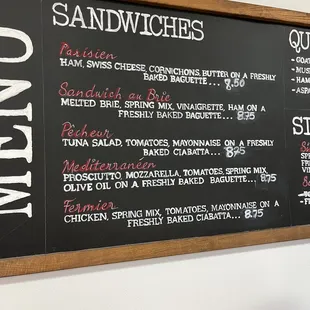 MENU
SANDWICHES
Parisien
HAM, SWISS CHEESE, CORNICHONS, BUTTER ON A FRESHLY
BAKED BAGUETTE... 8.50
Sandwich au Brie
MELTED BRIE, SPRING MIX, VINAIGRETTE, HAM ON A
FRESHLY BAKED BAGUETTE... 8.75
Pêcheur
TUNA SALAD, TOMATOES, MAYONNAISE ON A FRESHLY
BAKED CIABATTA... 8.25
Mediterranéen
PROSCIUTTO, MOZZARELLA, TOMATOES, SPRING MIX
OLIVE OIL ON A FRESHLY BAKED BAGUETTE... 8.75
Fermier
CHICKEN, SPRING MIX, TOMATOES, MAYONNAISE ON A
FRESHLY BAKED CIABATTA... 8.75
QU
- GOA
- MUS
- HAM
- ASPA
SI
SPR
FRE
VI